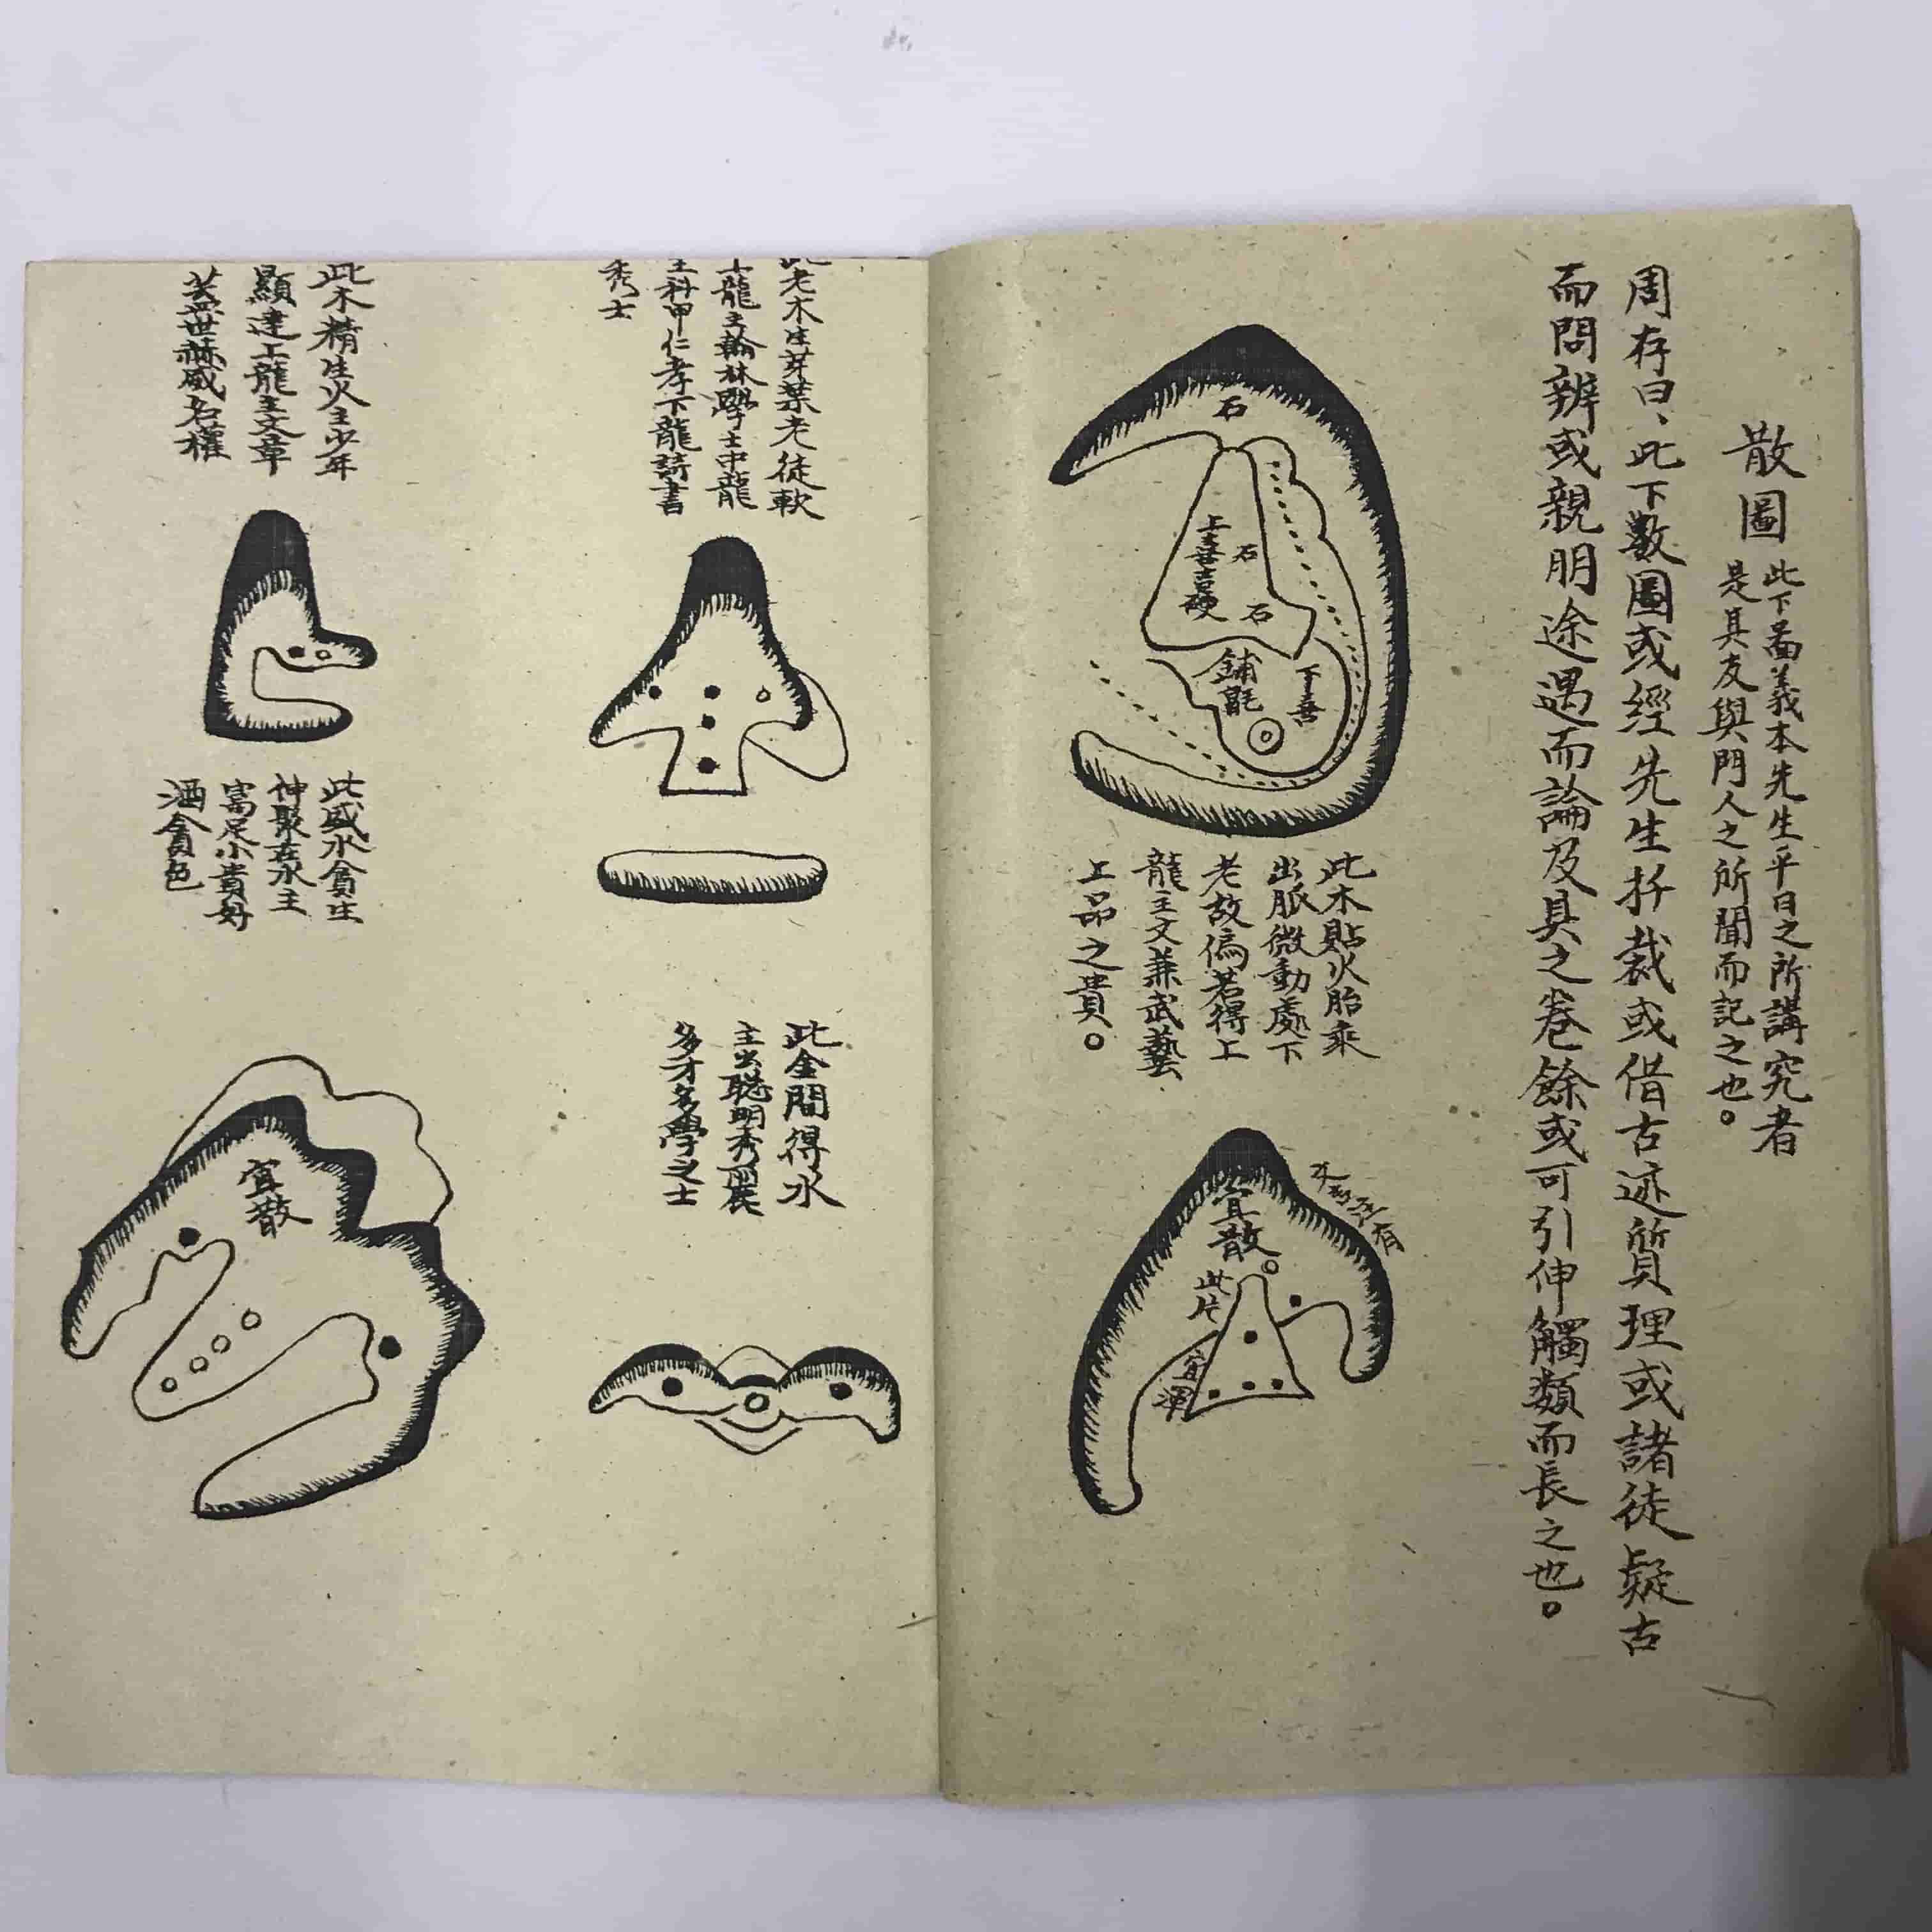 散圖
此下圖義本先生平日之所講究者
是其友與門人之所聞而記之也。
周存曰、此下數圖或經先生扦裁或借古迹質理或諸徒疑古
而問辨或親朋途遇而論及具之卷餘或可引伸觸類而長之也。
石
石
石
上喜吉硬
鋪氈
下喜
此木貼火胎乘
出脈微動處下
老故偏若得上
龍主文兼武藝
上品之貴。
宜散
此片
宜渾
老木生芽葉老徒軟
龍主翰林學士中龍
主科甲仁孝下龍詩書
秀士
此金間得水
主出聰明秀麗
多才多學之士
此木精生火主少年
顯達上龍主文章
盖世赫威名權
此盛水貪生
神聚在水主
富足小貴好
酒貪色
宜散